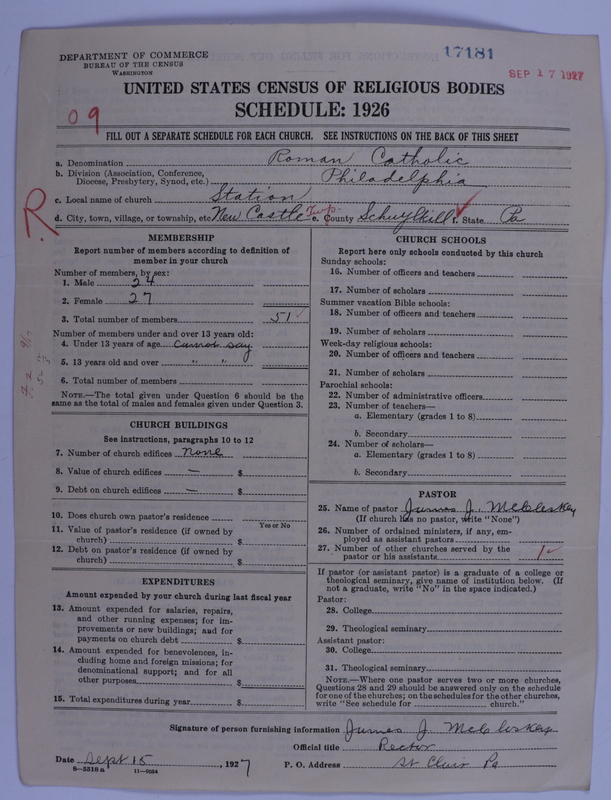 DEPARTMENT OF COMMERCE
BUREAU OF THE CENSUS
WASHINGTON
17181
SEP 17 1927
UNITED STATES CENSUS OF RELIGIOUS BODIES
SCHEDULE: 1926
09
FILL OUT A SEPARATE SCHEDULE FOR EACH CHURCH. SEE INSTRUCTIONS ON THE BACK OF THIS SHEET
a. Denomination Roman Catholic
b. Division (Association, Conference, Diocese, Presbytery, Synod, etc.) Philadelphia
c. Local name of church Station
R
d. City, town, village, or township, etc New Castle Twp e. County Schuylkill f. State Pa
MEMBERSHIP
Report number of members according to definition of
member in your church
Number of members, by sex:
1. Male 24
2. Female 27
3. Total number of members 51
Number of members under and over 13 years old:
4. Under 13 years of age Cannot say
5. 13 years old and over " "
6. Total number of members
NOTE.—The total given under Question 6 should be
same as the total of males and females given under Question 3.
CHURCH BUILDINGS
See instructions, paragraphs 10 to 12
7. Number of church edifices none
8. Value of church edifices — $
9. Debt on church edifices — $
10. Does church own pastor's residence
Yes or No
11. Value of pastor's residence (if owned by
church) $
12. Debt on pastor's residence (if owned by
church) $
EXPENDITURES
Amount expended by your church during last fiscal year
13. Amount expended for salaries, repairs,
and other running expenses; for im-
provements or new buildings; and for
payments on church debt $
14. Amount expended for benevolences, in-
cluding home and foreign missions; for
denominational support; and for all
other purposes $
15. Total expenditures during year $
CHURCH SCHOOLS
Report here only schools conducted by this church
Sunday schools:
16. Number of officers and teachers
17. Number of scholars
Summer vacation Bible schools:
18. Number of officers and teachers
19. Number of scholars
Week-day religious schools:
20. Number of officers and teachers
21. Number of scholars
Parochial schools:
22. Number of administrative officers
23. Number of teachers—
a. Elementary (grades 1 to 8)
b. Secondary
24. Number of scholars—
a. Elementary (grades 1 to 8)
b. Secondary
PASTOR
25. Name of pastor James J. McCloskey
(If church has no pastor, write "None")
26. Number of ordained ministers, if any, em-
ployed as assistant pastors
27. Number of other churches served by the
pastor or his assistants 1
If pastor (or assistant pastor) is a graduate of a college or
theological seminary, give name of institution below. (If
not a graduate, write "No" in the space indicated.)
Pastor:
28. College
29. Theological seminary
Assistant pastor:
30. College
31. Theological seminary
NOTE.—Where one pastor serves two or more churches,
Questions 28 and 29 should be answered only on the schedule
for one of the churches; on the schedules for the other churches,
write "See schedule for church."
Signature of person furnishing information James J. McCloskey
Official title Rector
Date Sept 15, 1927 P. O. Address St Clair Pa
8—5318a 11—9034